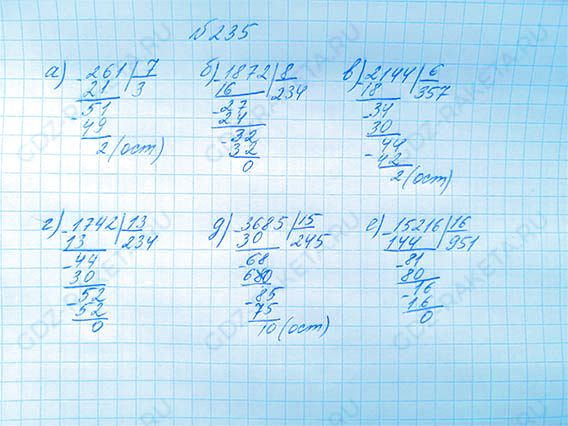 №235
а) -261 | 7
21 3
51
49
2 (ост)
б) -1872 | 8
16 234
-27
24
-32
32
0
в) -2144 | 6
18 357
-34
30
44
-42
2 (ост)
г) -1742 | 13
13 234
-44
30
-52
52
0
д) -3685 | 15
30 245
-68
680
-85
75
10 (ост)
е) -15216 | 16
144 951
-81
80
-16
16
0
GDZ-RAKETA.RU